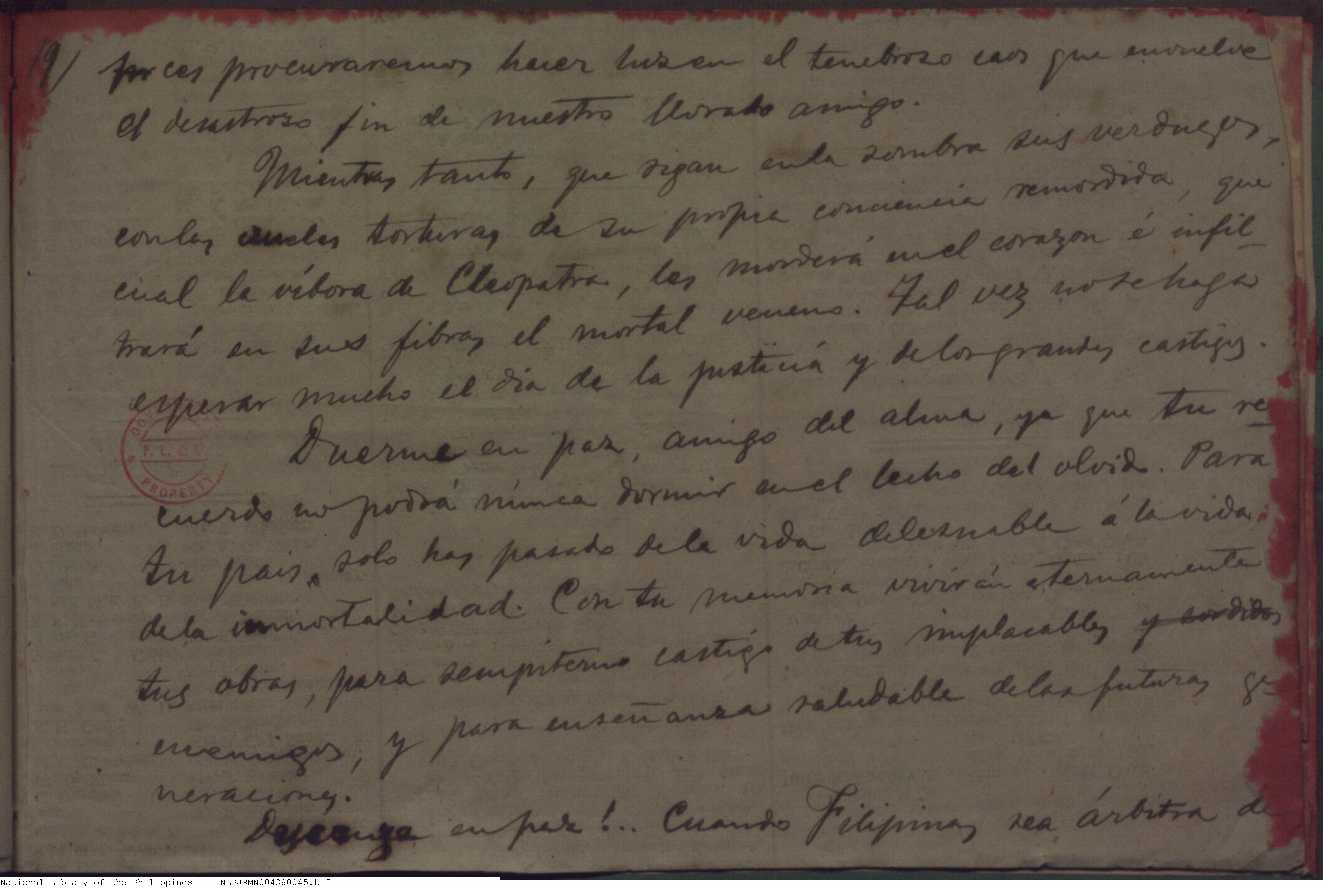 19/
ces procuraremos hacer luz en el tenebroso caos que envuelve
el desastroso fin de nuestro llorado amigo.
Mientras tanto, que sigan en la sombra sus verdugos,
con las crueles torturas de su propia conciencia remordida, que
cual la víbora de Cleopatra, les morderá en el corazon é infil-
trará en sus fibras el mortal veneno. Tal vez no se haga
esperar mucho el dia de la justicia y de los grandes castigos.
Duerme en paz, amigo del alma, ya que tu re-
cuerdo no podrá nunca dormir en el lecho del olvido. Para
tu pais, solo has pasado de la vida deleznable á la vida
de la inmortalidad. Con tu memoria vivirán eternamente
tus obras, para sempiterno castigo de tus implacables y sordidos
enemigos, y para enseñanza saludable de las futuras ge-
neraciones.
en paz!.. Cuando Filipinas sea árbitra de
PROPERTY
National Library of the Philippines